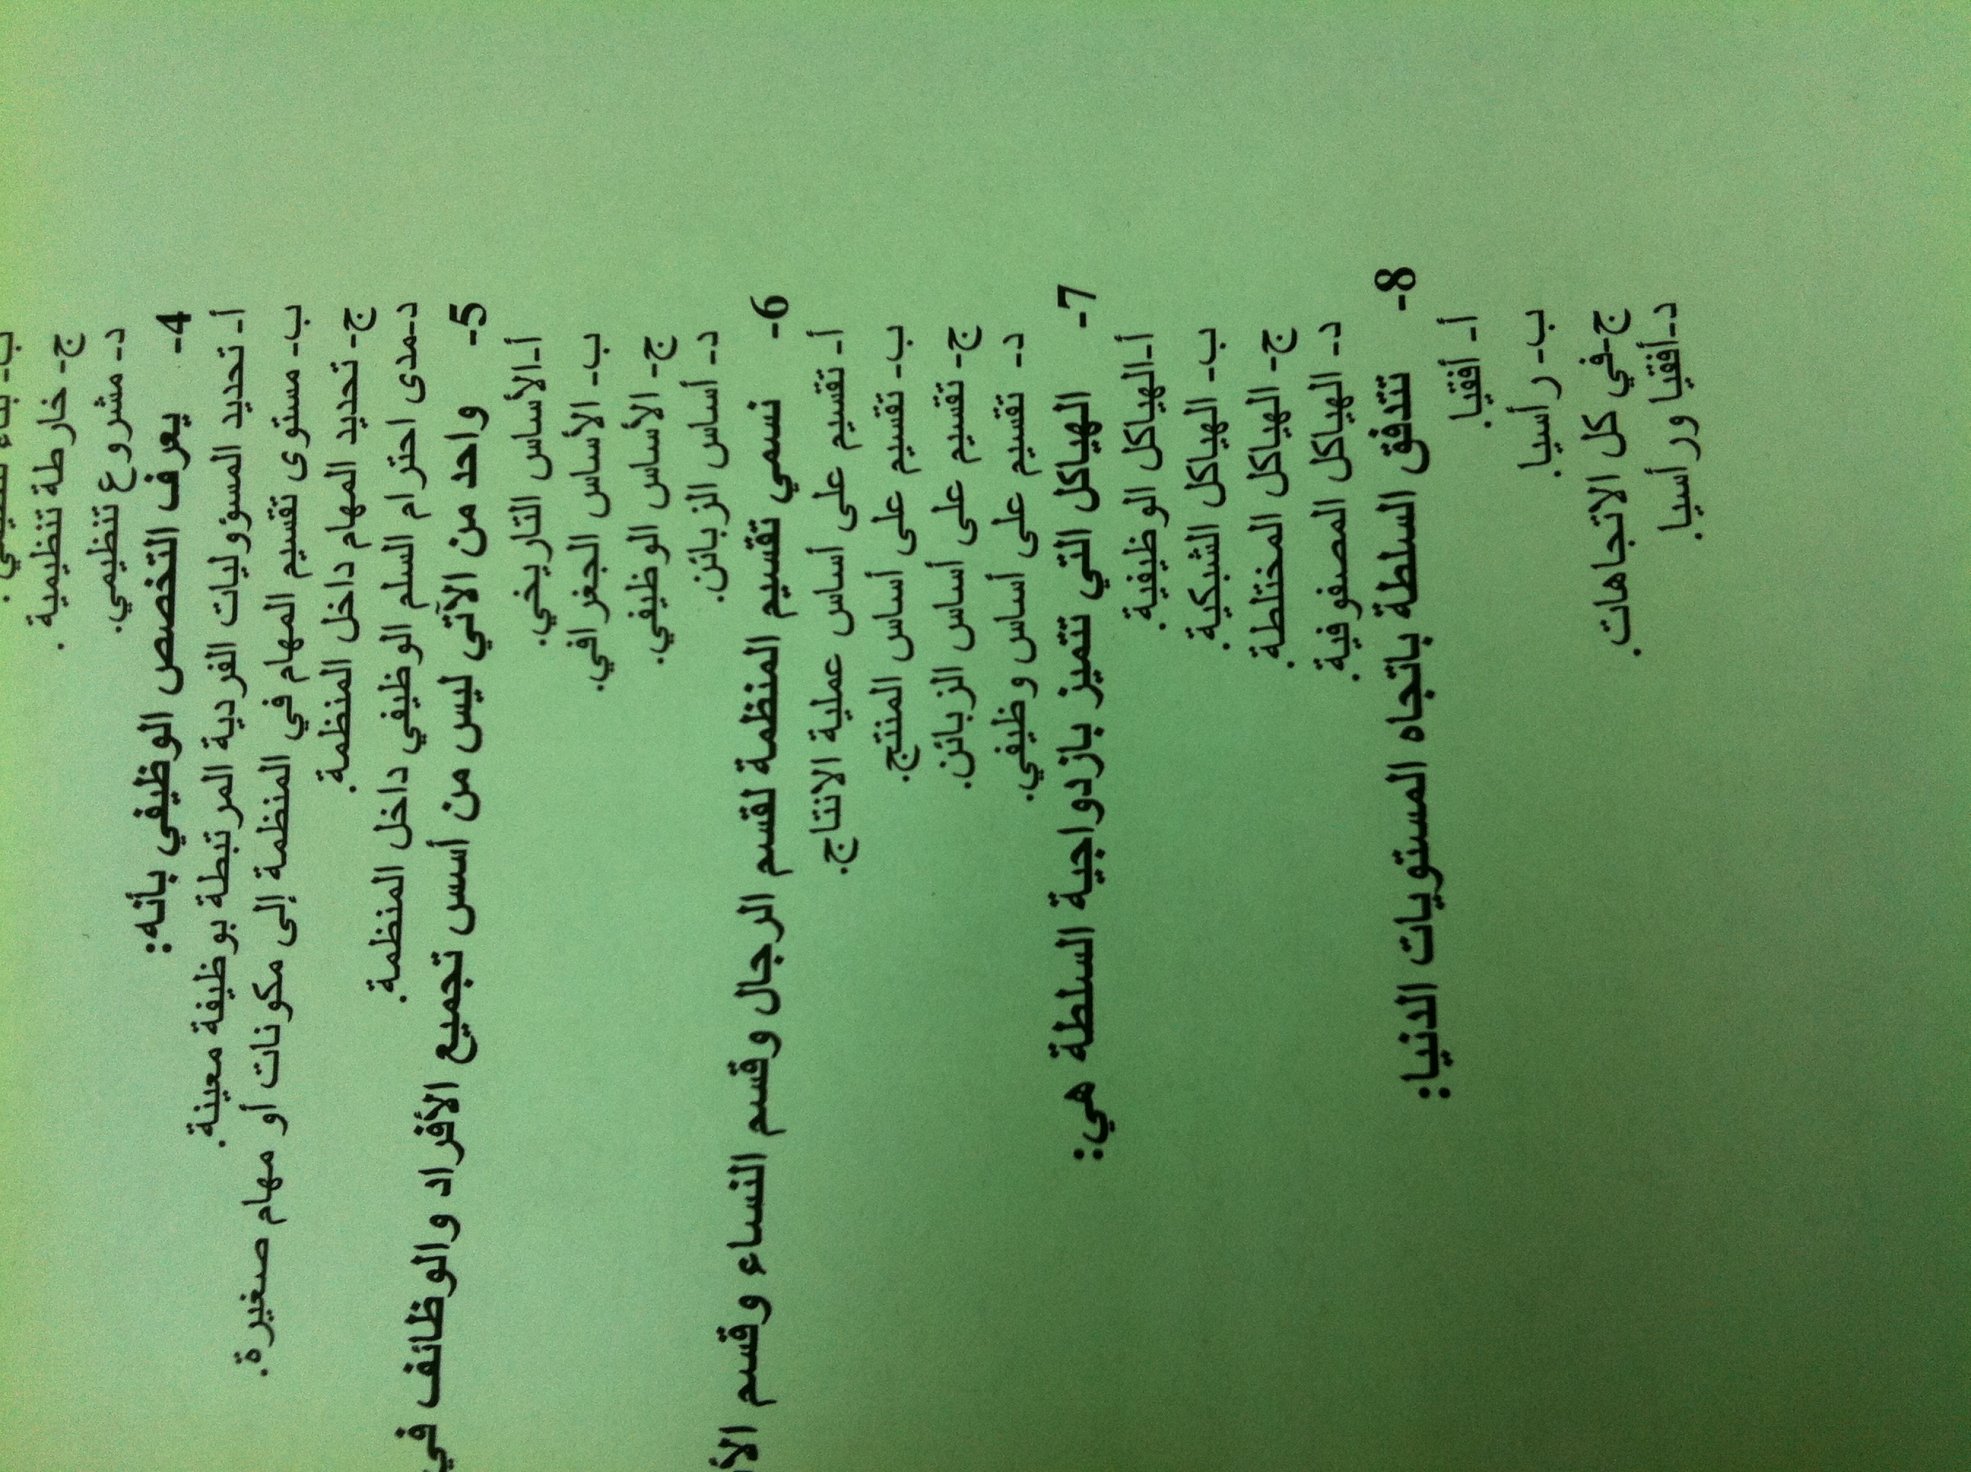 ج- خارطة تنظيمية .
د- مشروع تنظيمي.
4- يعرف التخصص الوظيفي بأنه:
أ- تحديد المسؤوليات الفردية المرتبطة بوظيفة معينة.
ب- مستوى تقسيم المهام في المنظمة إلى مكونات أو مهام صغيرة.
ج- تحديد المهام داخل المنظمة.
د-مدى احترام السلم الوظيفي داخل المنظمة.
5- واحد من الآتي ليس من أسس تجميع الأفراد والوظائف في
أ-الأساس التاريخي.
ب- الأساس الجغرافي.
ج- الأساس الوظيفي.
د- أساس الزبائن.
6- نسمي تقسيم المنظمة لقسم الرجال وقسم النساء وقسم
أ- تقسيم على أساس عملية الانتاج.
ب- تقسيم على أساس المنتج.
ج- تقسيم على أساس الزبائن.
د- تقسيم على أساس وظيفي.
7- الهياكل التي تتميز بازدواجية السلطة هي:
أ-الهياكل الوظيفية.
ب- الهياكل الشبكية.
ج- الهياكل المختلطة.
د- الهياكل المصفوفية.
8- تتدفق السلطة باتجاه المستويات الدنيا:
أ- أفقيا.
ب- رأسيا.
ج-في كل الاتجاهات.
د-أفقيا ورأسيا.